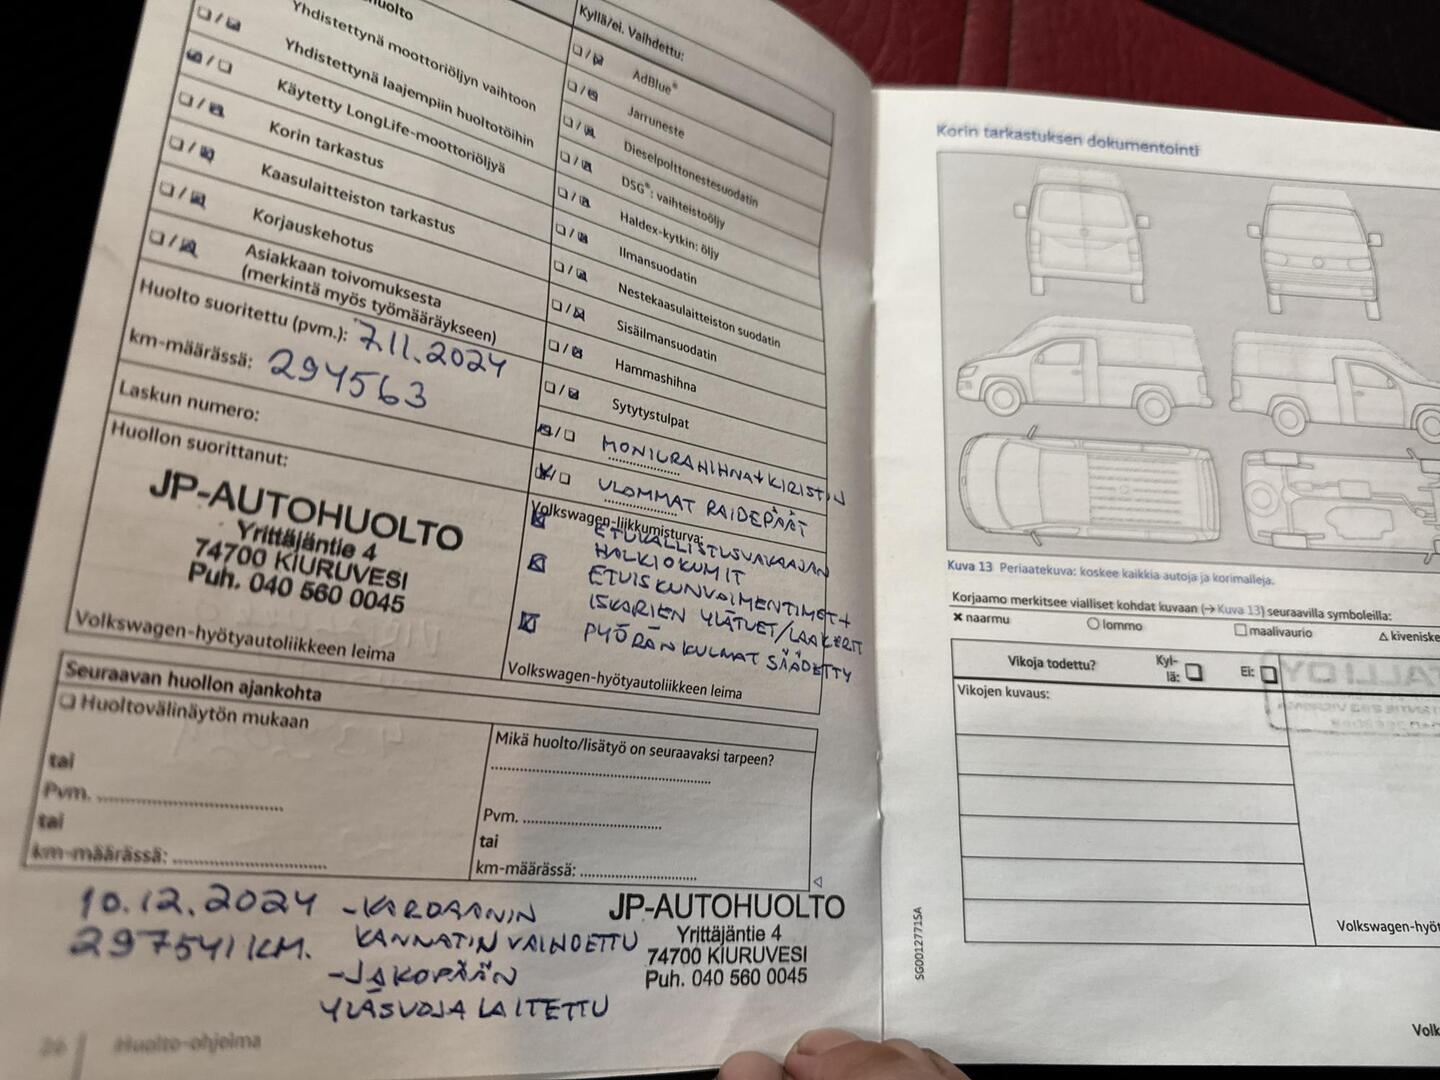 Yhdistettynä moottoriöljyn vaihtoon
Yhdistettynä laajempiin huoltotöihin
Käytetty LongLife-moottoriöljyä
Korin tarkastus
Kaasulaitteiston tarkastus
Korjauskehotus
Asiakkaan toivomuksesta
(merkintä myös työmääräykseen)
Huolto suoritettu (pvm.): 7.11.2024
km-määrässä: 294563
Laskun numero:
Huollon suorittanut:
JP-AUTOHUOLTO
Yrittäjäntie 4
74700 KIURUVESI
Puh. 040 560 0045
Volkswagen-hyötyautoliikkeen leima
Kyllä/ei. Vaihdettu:
AdBlue®
Jarruneste
Dieselpolttonestesuodatin
DSG®: vaihteistoöljy
Haldex-kytkin: öljy
Ilmansuodatin
Nestekaasulaitteiston suodatin
Sisäilmansuodatin
Hammashihna
Sytytystulpat
MONIURAHIHNA+KIRISTIN
ULOMMAT RAIDEPÄÄT
Volkswagen-liikkumisturva:
ETUVALLISTUSVAKAAJAN
HALKIOKUMIT
ETUISKUNVAIMENTIMET+
ISKARIEN YLÄTUET/LAAKERIT
PYÖRÄNKULMAT SÄÄDETTY
Volkswagen-hyötyautoliikkeen leima
Seuraavan huollon ajankohta
Huoltovälinäytön mukaan
tai
Pvm.
tai
km-määrässä:
Mikä huolto/lisätyö on seuraavaksi tarpeen?
Pvm.
tai
km-määrässä:
10.12.2024
297541 KM.
-KARDAANIN
KANNATIN VAIHDETTU
-JAKOPÄÄN
YLÄSUOJA LAITETTU
JP-AUTOHUOLTO
Yrittäjäntie 4
74700 KIURUVESI
Puh. 040 560 0045
26 Huolto-ohjelma
Korin tarkastuksen dokumentointi
Kuva 13 Periaatekuva: koskee kaikkia autoja ja korimalleja.
Korjaamo merkitsee vialliset kohdat kuvaan (→ Kuva 13) seuraavilla symboleilla:
naarmu lommo maalivaurio kiveniske
Vikoja todettu? Kyl-
lä: Ei:
Vikojen kuvaus:
Volkswagen-hyöt
SG0012771SA
Volk